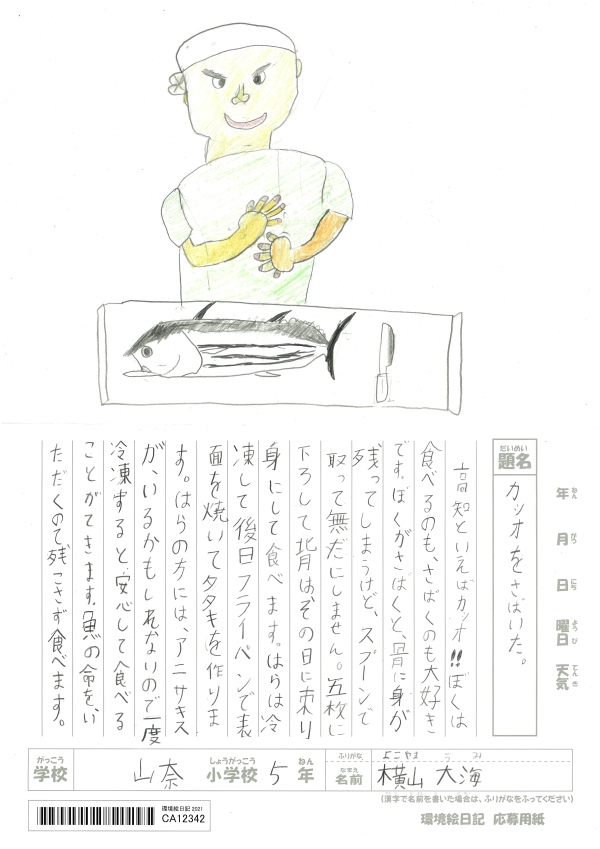 年 ねん
月 がつ
日 にち
曜日 ようび
天気 てんき
だいめい
題名
カツオをさばいた。
高知といえばカツオ!!ぼくは
食べるのも、さばくのも大好き
です。ぼくがさばくと、骨に身が
残ってしまうけど、スプーンで
取って無だにしません。五枚に
下ろして背はその日に刺
身にして食べます。はらは冷
凍して後日フライパンで表
面を焼いてタタキを作りま
す。はらの方には、アニサキス
が、いるかもしれないので一度
冷凍すると、安心して食べる
ことができます。魚の命を、い
ただくので残こさず食べます。
がっこう しょうがっこう ねん
学校 山奈 小学校 5 年
ふりがな よこやま うみ
なまえ
名前 横山 大海
(漢字で名前を書いた場合は、ふりがなをふってください)
環境絵日記 2021
CA12342
環境絵日記 応募用紙